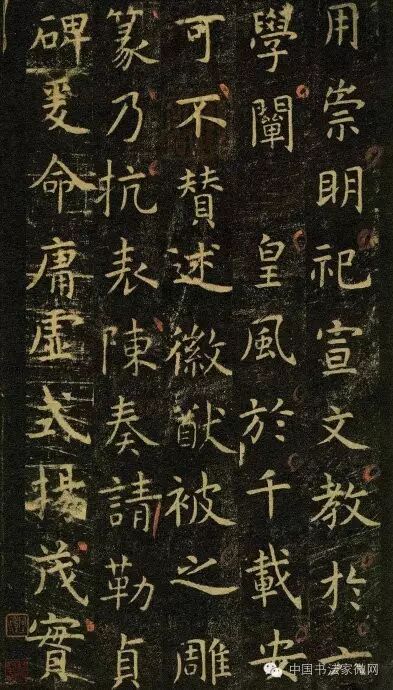 用崇明祀宣文教於六
學闡皇風於千載安
可不贊述徽猷被之雕
篆乃抗表陳奏請勒貞
碑爰命庸虛式揚茂實
中国书法家微网